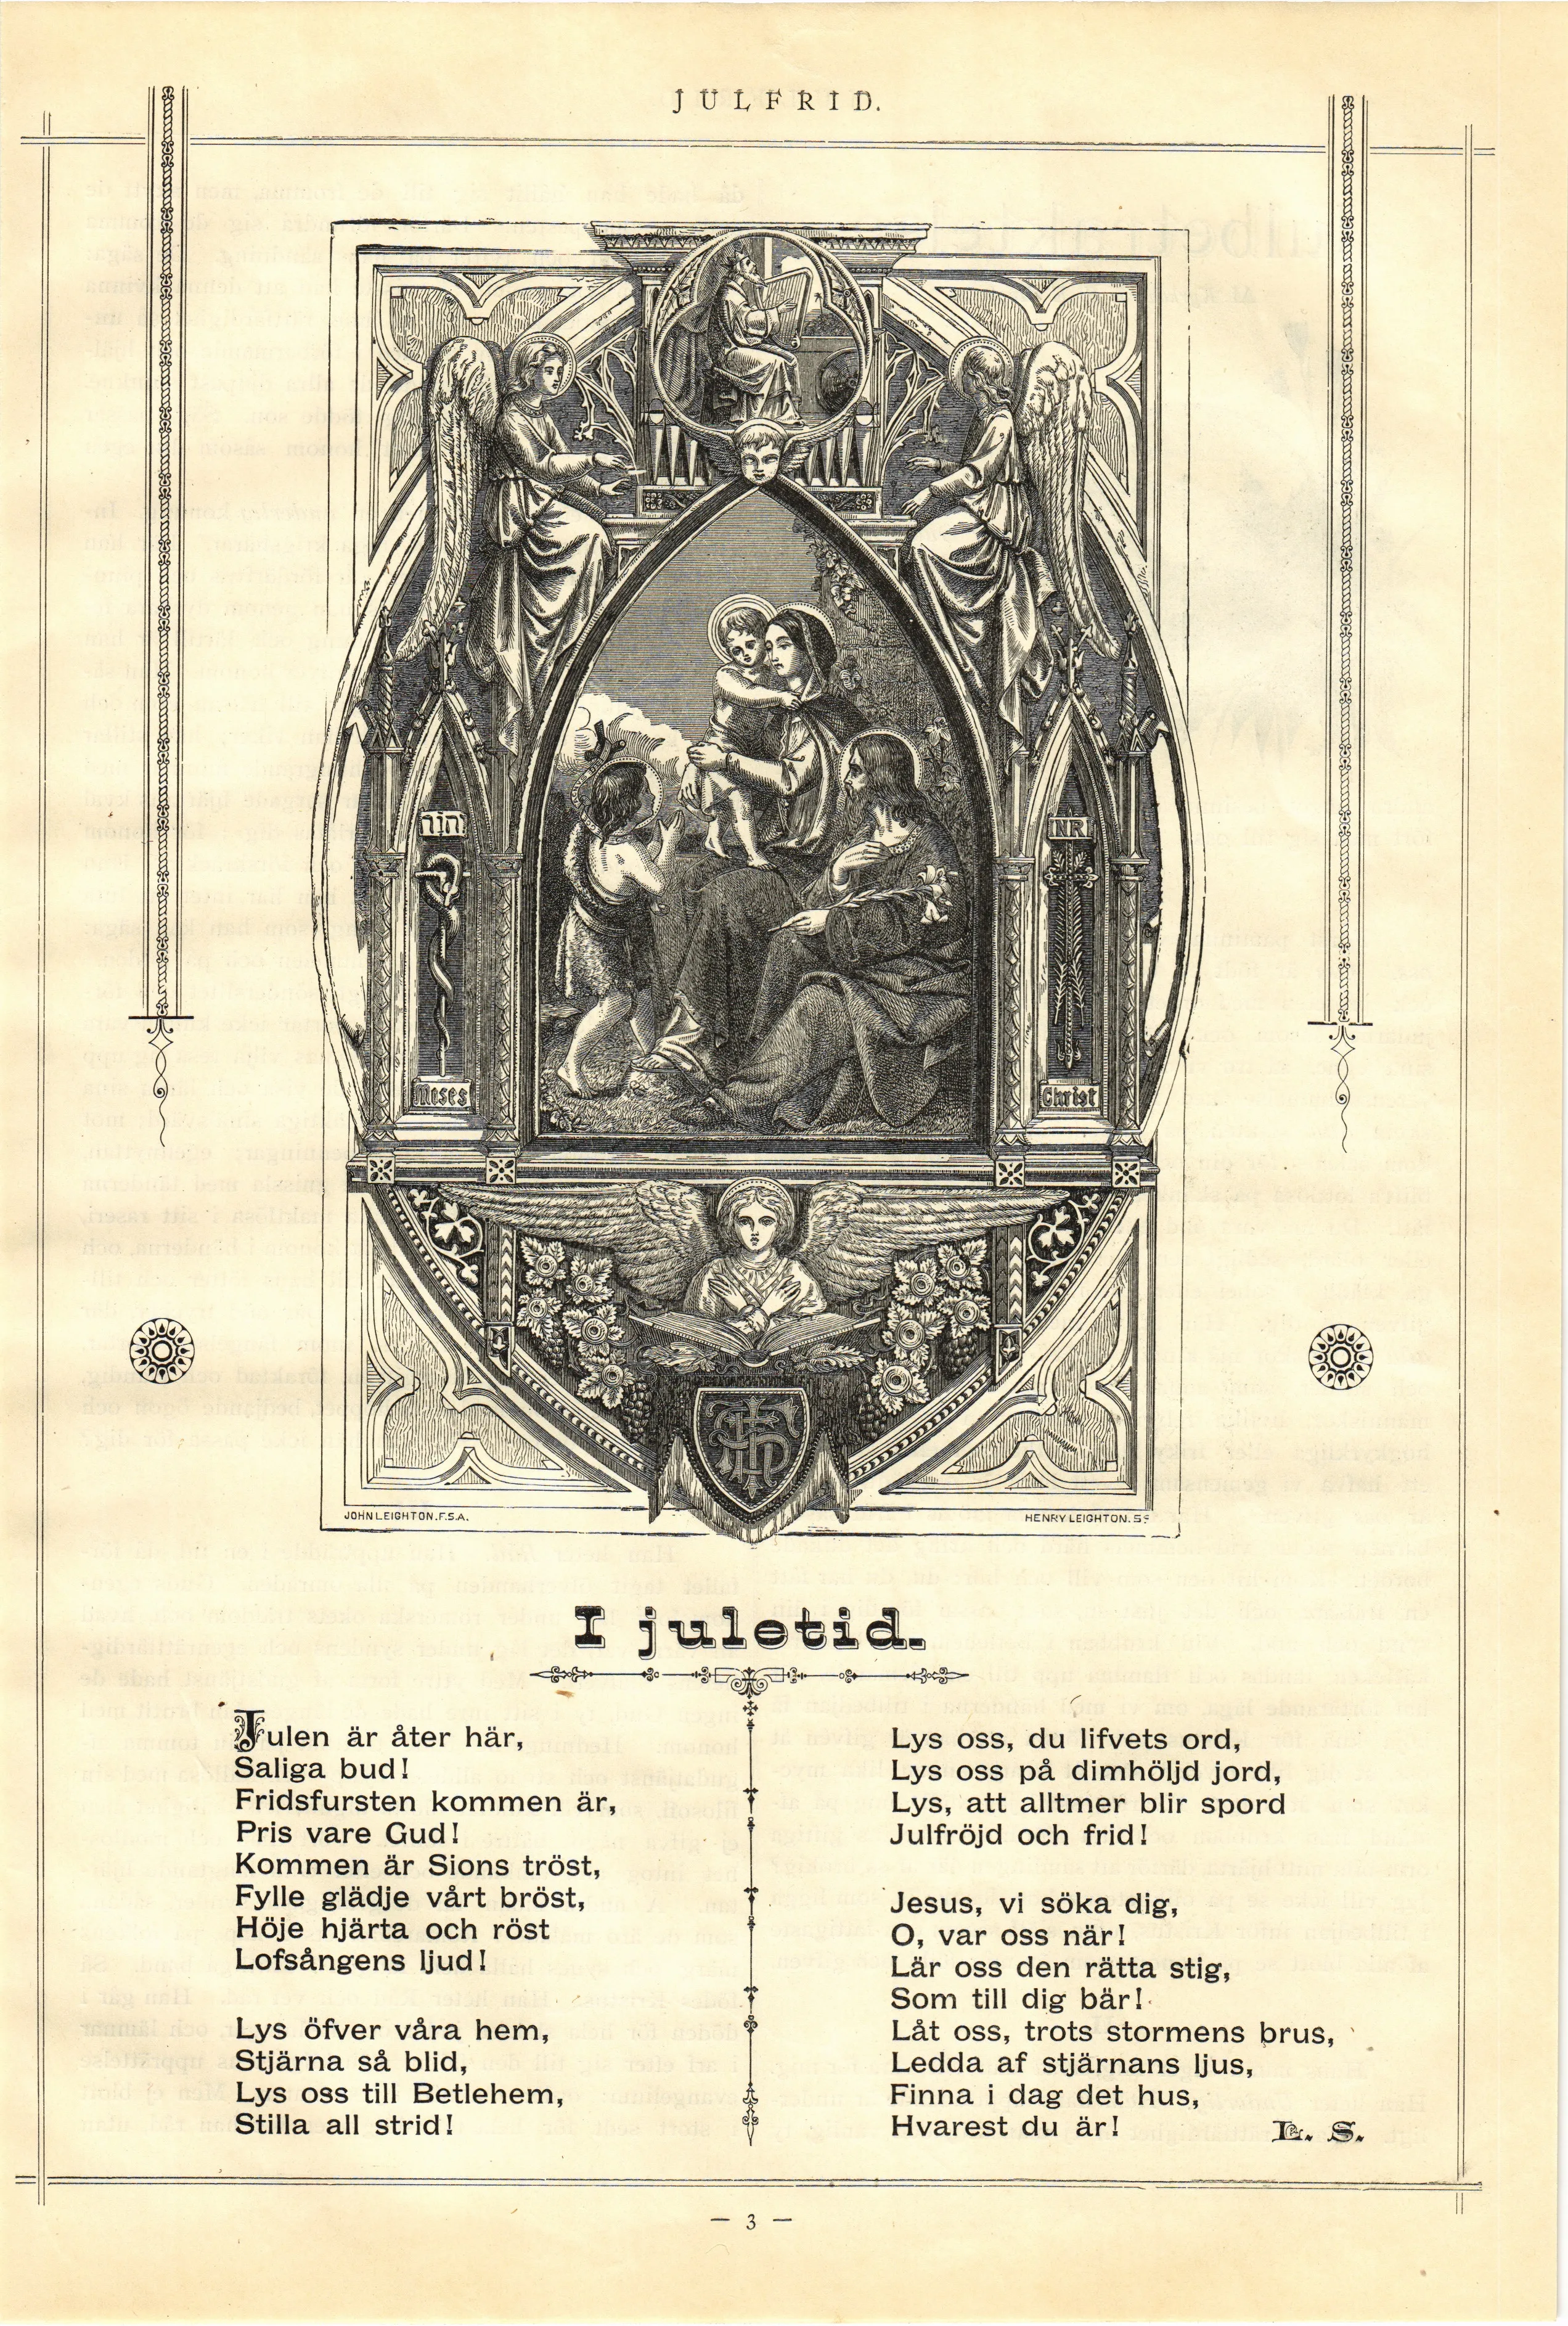 JULFRID.
יהוה
INRI
Moses
Christ
IHS
JOHN LEIGHTON.F.S.A.
HENRY LEIGHTON. SC
I juletid.
Julen är åter här,
Saliga bud!
Fridsfursten kommen är,
Pris vare Gud!
Kommen är Sions tröst,
Fylle glädje vårt bröst,
Höje hjärta och röst
Lofsångens ljud!
Lys öfver våra hem,
Stjärna så blid,
Lys oss till Betlehem,
Stilla all strid!
Lys oss, du lifvets ord,
Lys oss på dimhöljd jord,
Lys, att alltmer blir spord
Julfröjd och frid!
Jesus, vi söka dig,
O, var oss när!
Lär oss den rätta stig,
Som till dig bär!
Låt oss, trots stormens brus,
Ledda af stjärnans ljus,
Finna i dag det hus,
Hvarest du är!
L. S.
— 3 —